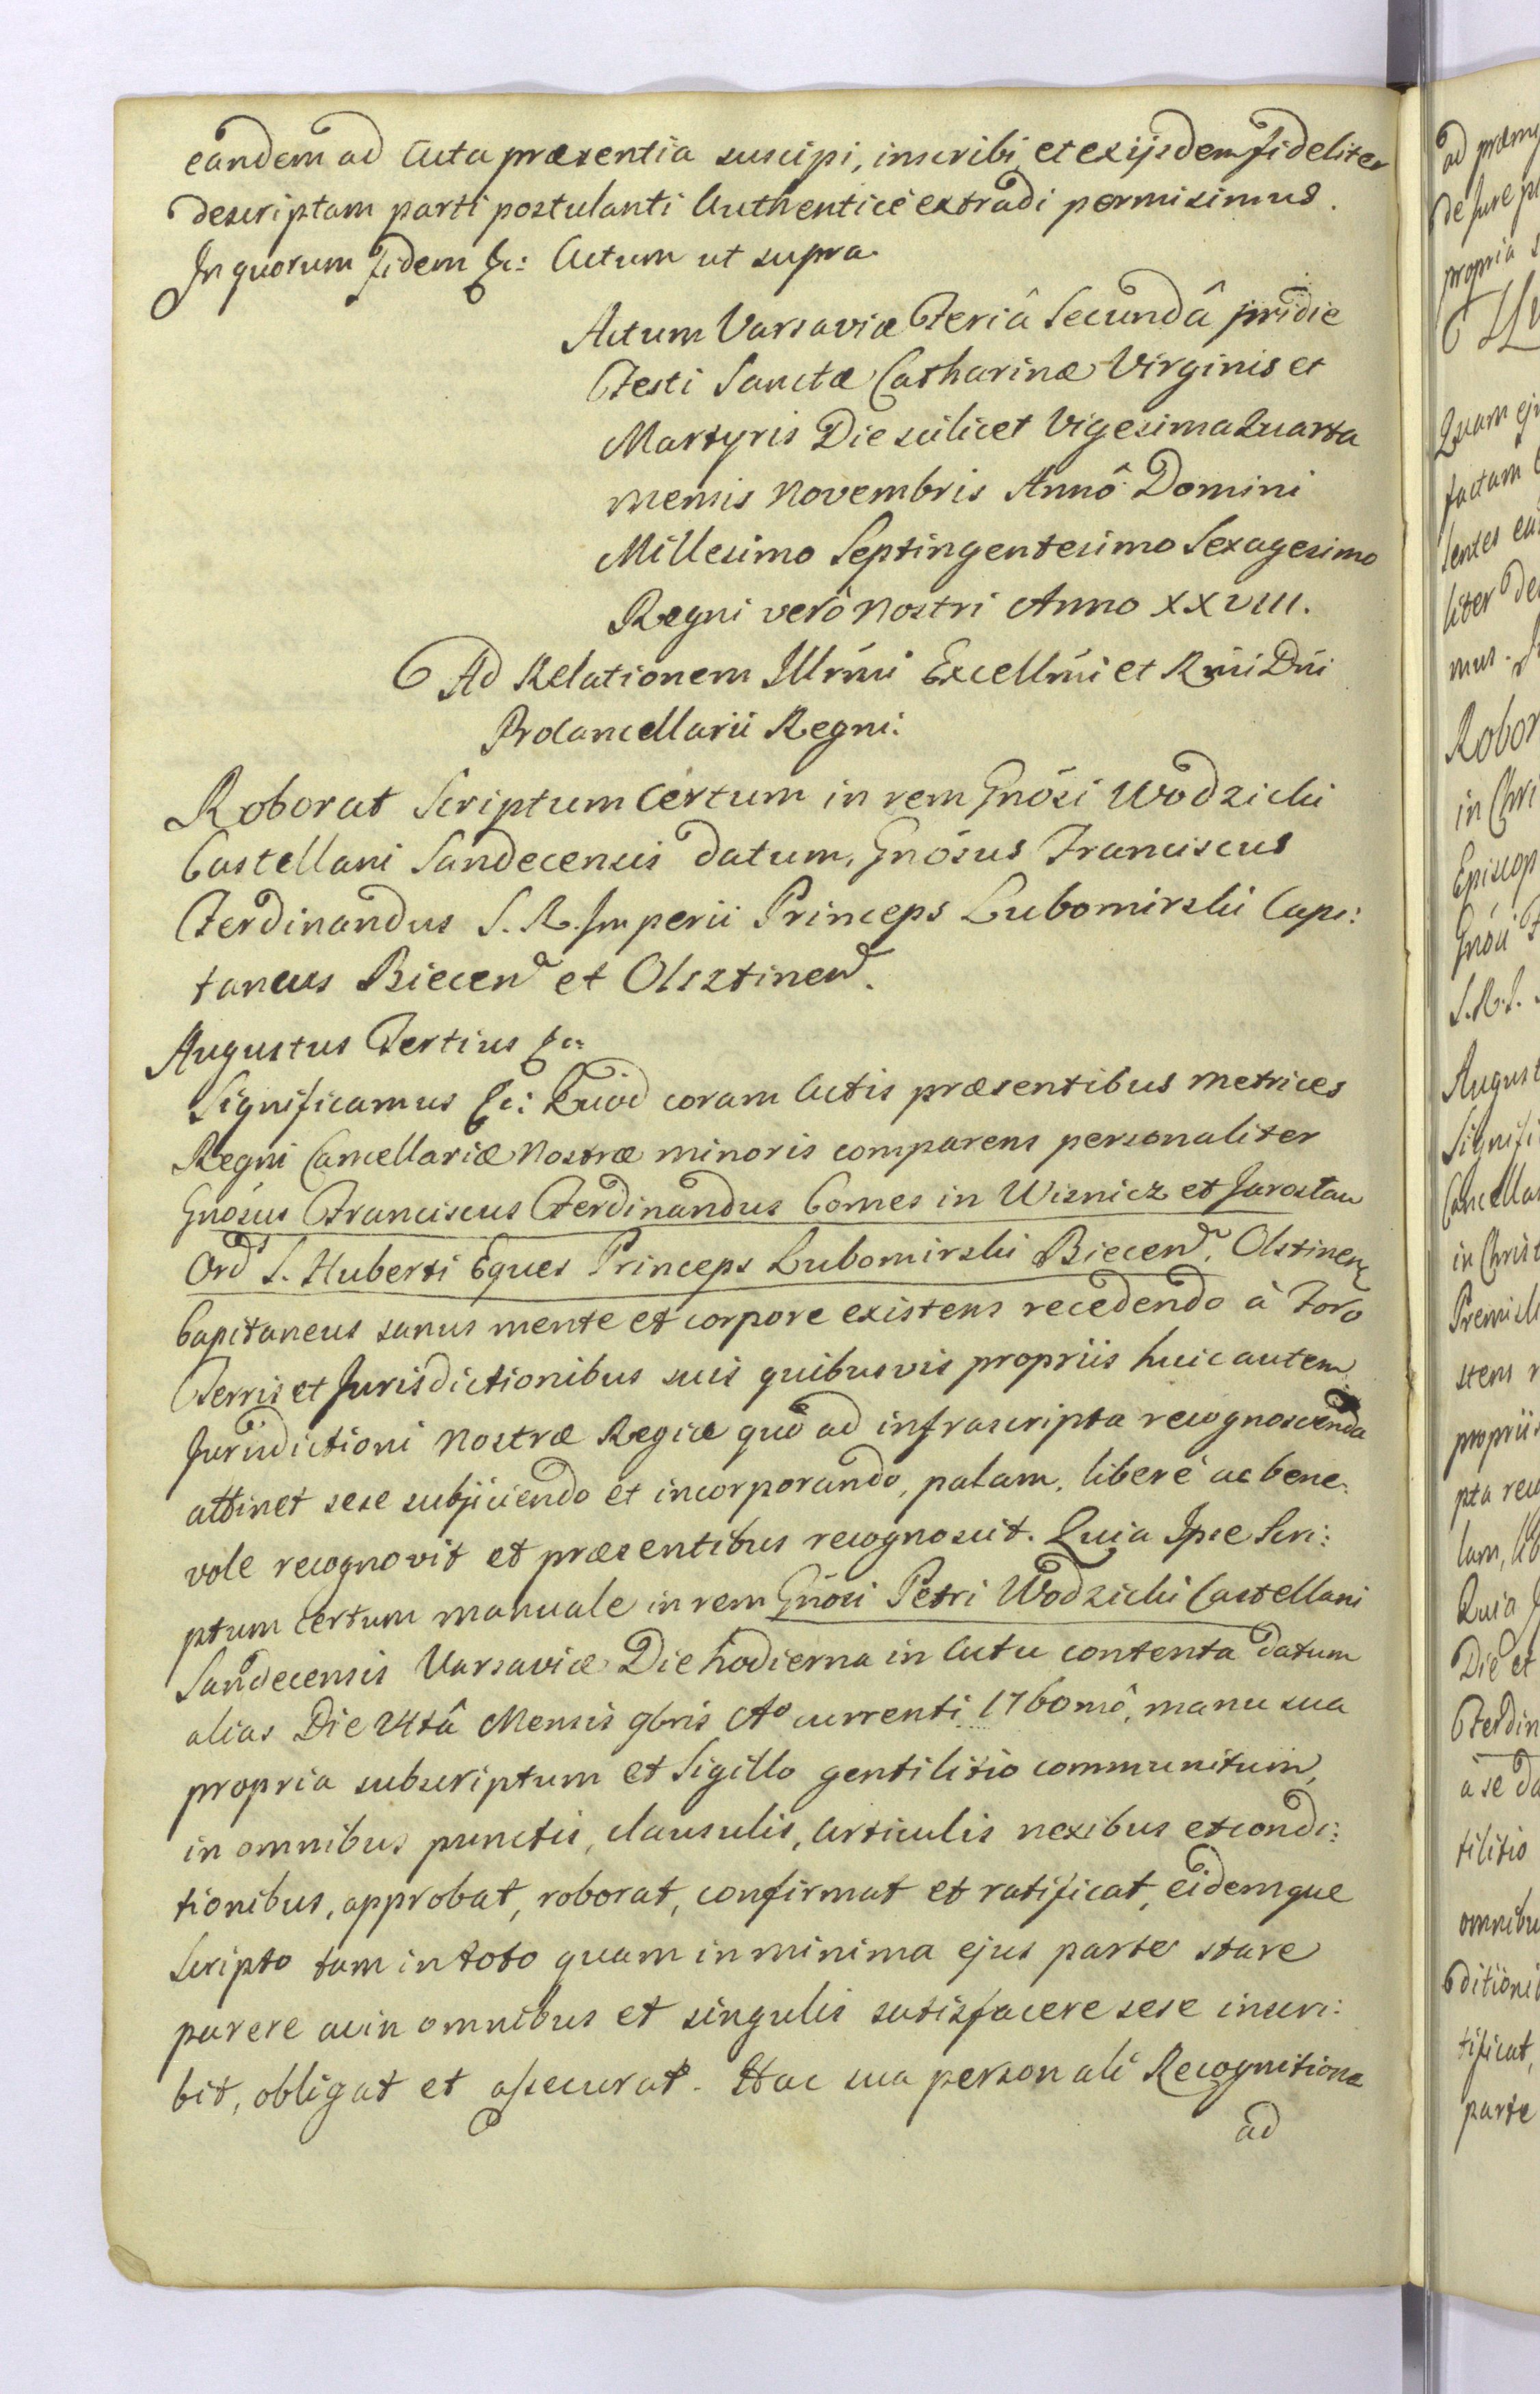 eandem ad Acta præsentia suscipi, inscribi et ex ijsdem fideliter
descriptam parti postulanti Authenticè extradi permisimus.
In quorum fidem &c: Actum ut supra.
Actum Varsaviæ Feriâ Secundâ pridie
Festi Sanctæ Catharinæ Virginis et
Martyris Die scilicet Vigesima Quarta
mensis Novembris Annô Domini
Millesimo Septingentesimo Sexagesimo
Regni verò Nostri Anno XXVIII.
Ad Relationem Illrmi Excellmi et Rmi Dni
Procancellarii Regni:
Roborat Scriptum Certum in rem Gnosi Wodzicki
Castellani Sandecensis datum, Gnosus Franciscus
Ferdinandus S. R. Imperii Princeps Lubomirski Capi:
taneus Biecen et Olsztinen.
Augustus Tertius &c:
Significamus &c: Quod coram Actis præsentibus Metrices
Regni Cancellariæ Nostræ minoris comparens personaliter
Gnosus Franciscus Ferdinandus Comes in Wisnicz et Jarosłau
Ord S. Huberti Eques Princeps Lubomirski Biecen, Olstinen
Capitaneus sanus mente et corpore existens recedendo à Foro
Terris et Jurisdictionibus suis quibusvis propriis huic autem
Jurisdictioni Nostræ Regiæ quò ad infrascripta recognoscenda
attinet sese subjiciendo et incorporando, palam, liberè ac bene:
vole recognovit et præsentibus recognoscit. Quia Ipse Scri:
ptum certum manuale in rem Gnosi Petri Wodzicki Castellani
Sandecensis Varsaviæ Die hodierna in Actu contenta datum
alias Die 24tâ Mensis 9bris Ao currenti 1760mô, manu sua
propria subscriptum et Sigillo gentilitio communitum,
in omnibus punctis, clausulis, Articulis nexibus et condi:
tionibus, approbat, roborat, confirmat et ratificat, eidemque
Scripto tam in toto quam in minima ejus parte stare
parere ac in omnibus et singulis satisfacere sese inscri:
bit, obligat et assecurat. Hac sua personali Recognitione
ad